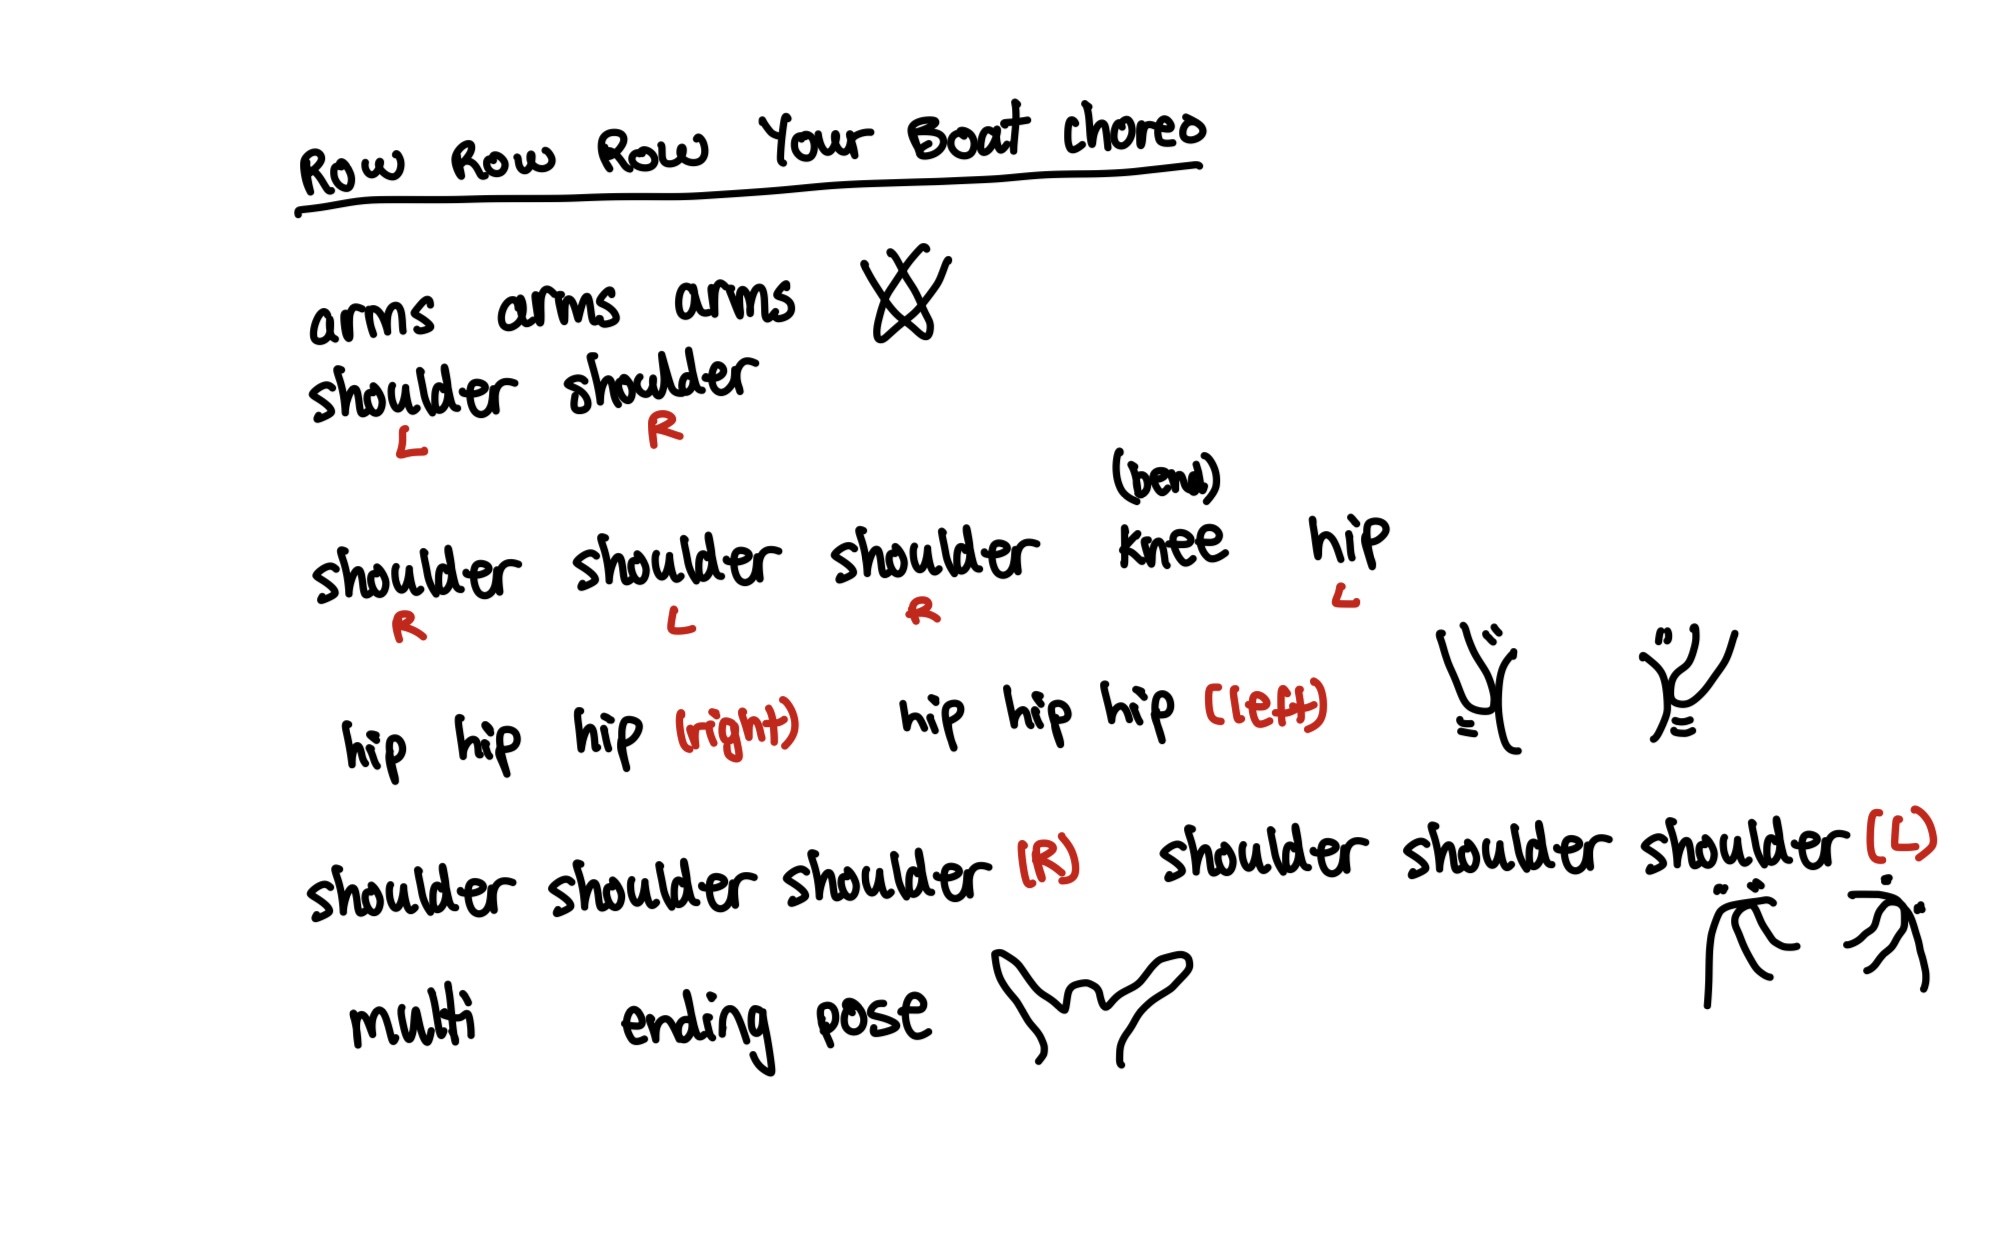 Row Row Row Your Boat choreo
arms arms arms
shoulder shoulder
L R
(bend)
shoulder shoulder shoulder knee hip
R L R L
hip hip hip (right) hip hip hip (left)
shoulder shoulder shoulder (R) shoulder shoulder shoulder (L)
multi ending pose